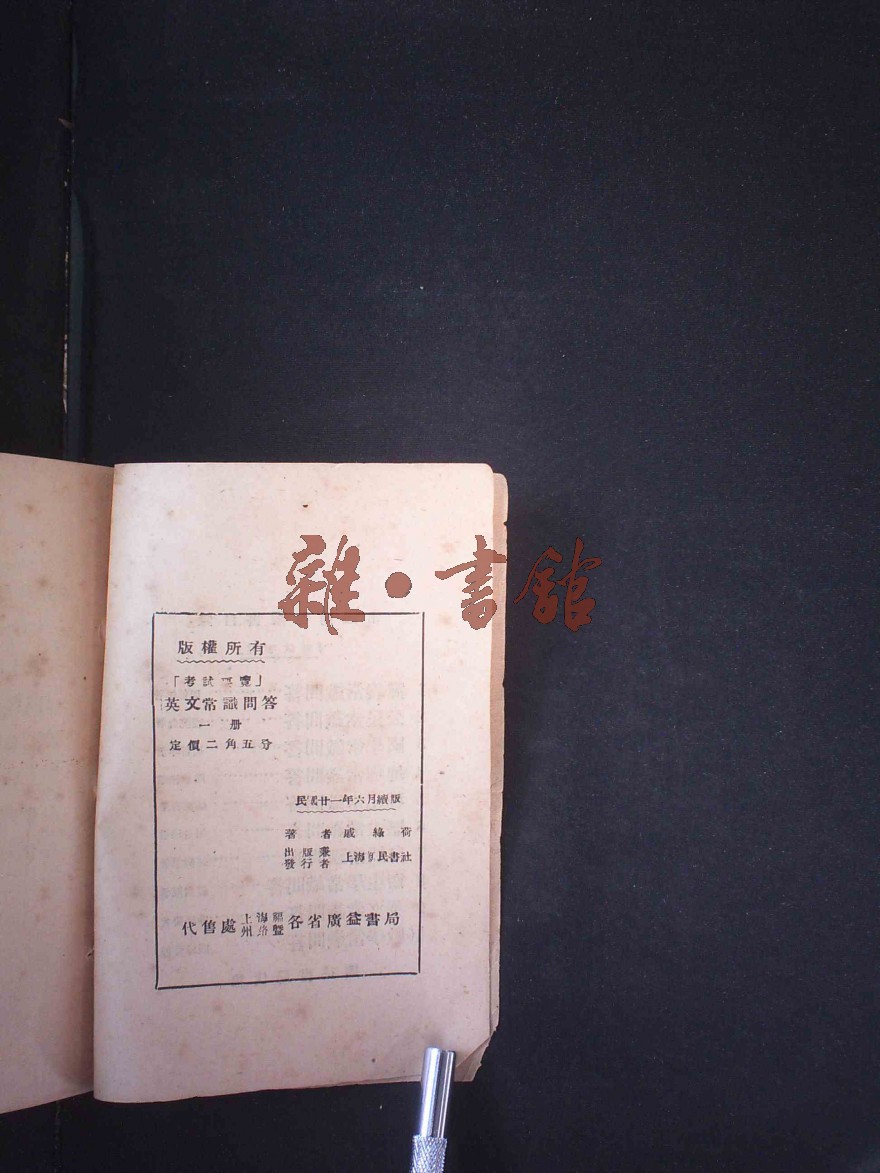 雜·書館
版權所有
「考試準覽」
英文常識問答
一册
定價二角五分
民國廿一年六月續版
著者 戚綠荷
出版兼發行者 上海新民書社
代售處 上海福州路暨各省廣益書局